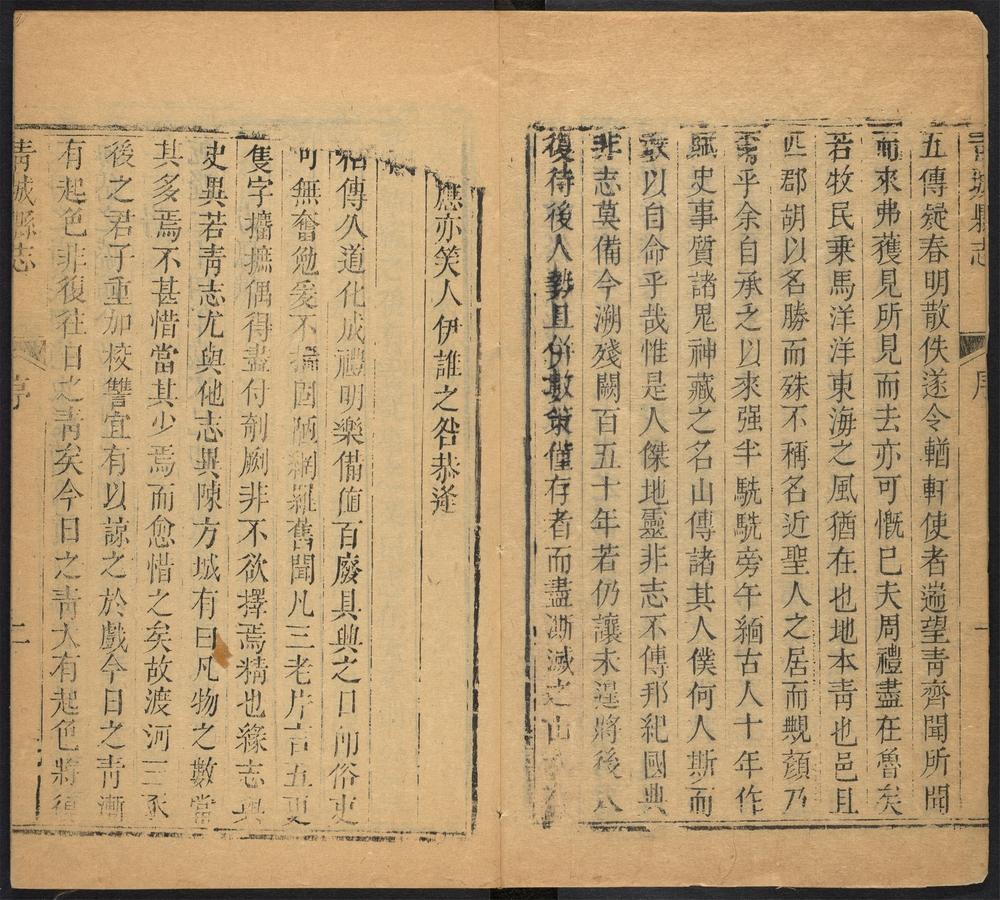 青城縣志
序
一
五傳疑春明散佚遂令輶軒使者遄望青齊聞所聞
而來弗獲見所見而去亦可慨已夫周禮盡在魯矣
若牧民乗馬洋洋東海之風猶在也地本青也邑且
匹郡胡以名勝而殊不稱名近聖人之居而覥顏乃
爾乎余自承之以來强半駪駪旁午緬古人十年作
賦史事質諸鬼神藏之名山傳諸其人僕何人斯而
敢以自命乎哉惟是人傑地靈非志不傳邦紀國典
非志莫備今溯殘闕百五十年若仍讓未遑將後人
復待後人勢且併數策僅存者而盡澌滅之山
應亦笑人伊誰之咎恭逢
傳久道化成禮明樂備值百廢具興之日所俗吏
可無奮勉爰不揣固陋網羅舊聞凡三老片言五更
隻字擴摭偶得盡付剞劂非不欲擇焉精也緣志與
史異若青志尤與他志異陳方城有曰凡物之數當
其多焉不甚惜當其少焉而愈惜之矣故渡河三豕
後之君子重加校讐宜有以諒之於戲今日之青漸
有起色非復往日之青矣今日之青大有起色將復
青城縣志
序
二